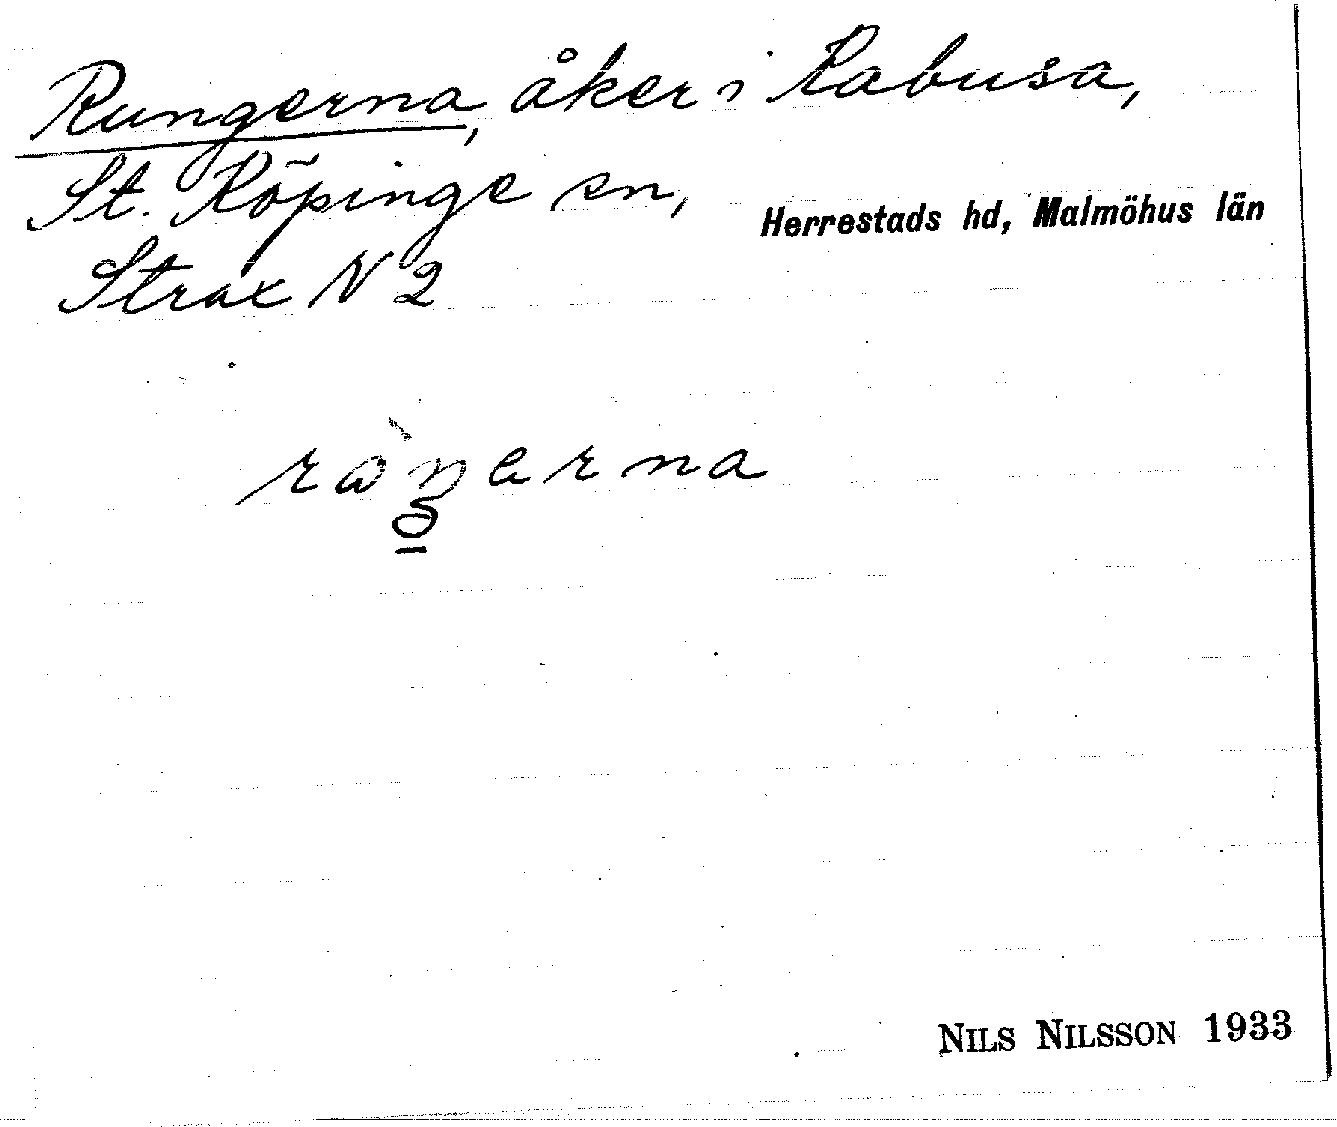 Rungerna, åker i Kabusa,
St. Köpinge sn, Herrestads hd, Malmöhus län
Strax N 2
NILS NILSSON 1933